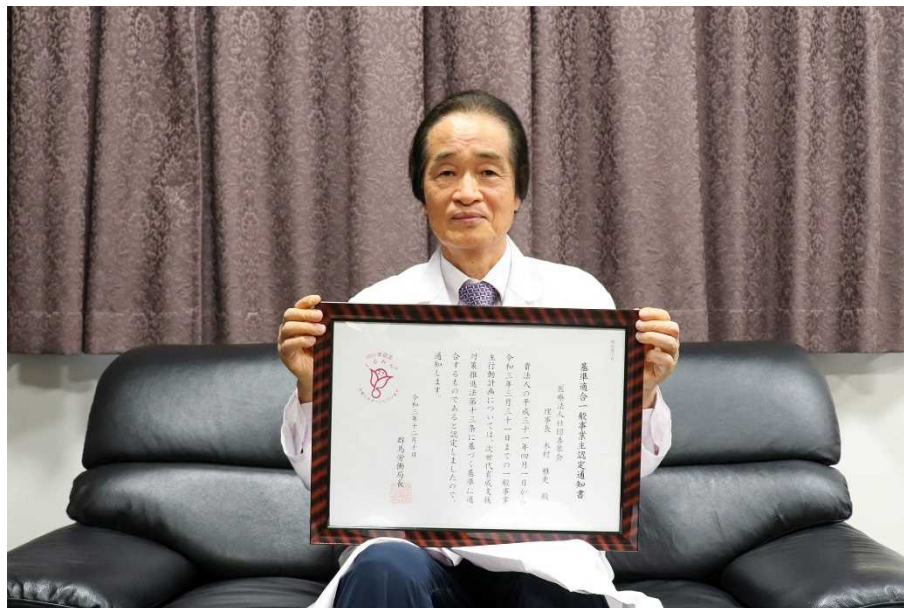 基準適合一般事業主認定通知書
医療法人社団善衆会
理事長 木村 雅史 殿
貴法人の平成三十一年四月一日から
令和三年三月三十一日までの一般事業
主行動計画については、次世代育成支援
対策推進法第十三条に基づく基準に適
合するものであると認定しましたので、
通知します。
令和三年十二月十日
群馬労働局長